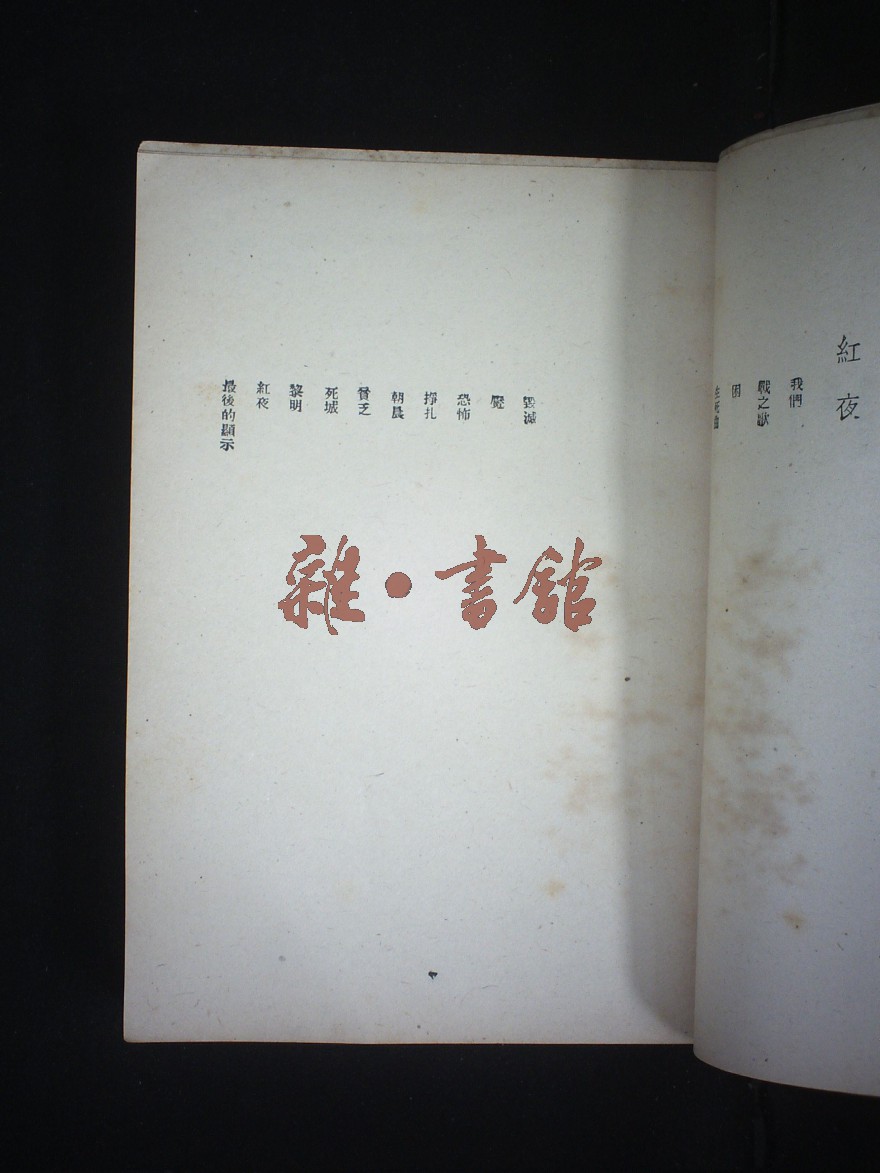 紅夜
我們
戰之歌
困
毀滅
魘
恐怖
掙扎
朝晨
貧乏
死城
黎明
紅夜
最後的顯示
雜·書館